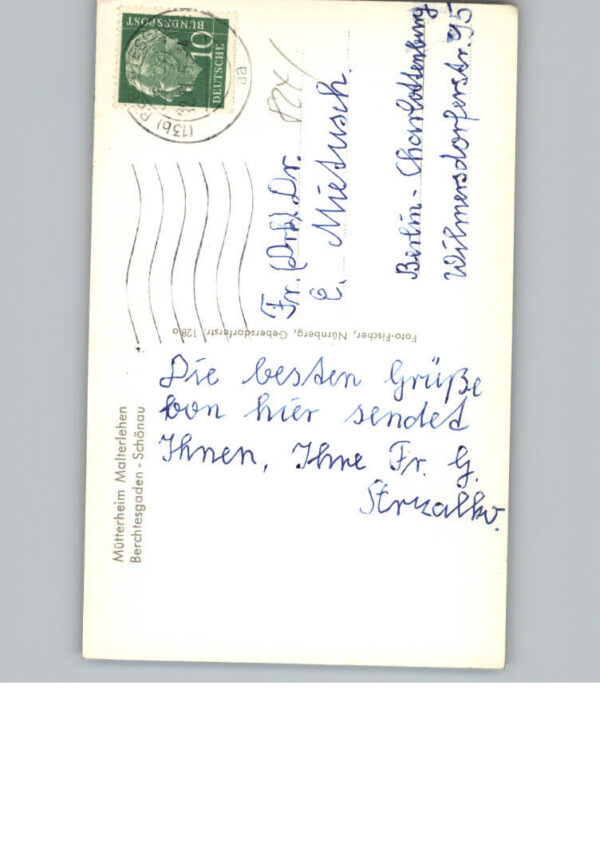 Mütterheim Malterlehen
Berchtesgaden - Schönau
Die besten Grüße
von hier sendet
Ihnen, Ihre Fr. G.
Strzalko.
Foto-Fischer, Nürnberg, Gebersdorferstr. 128a
DEUTSCHE
BUNDESPOST
10
(13b)
aa
Fr. Dr.
E. Mietusch.
Berlin - Charlottenburg
Wilmersdorferstr. 95